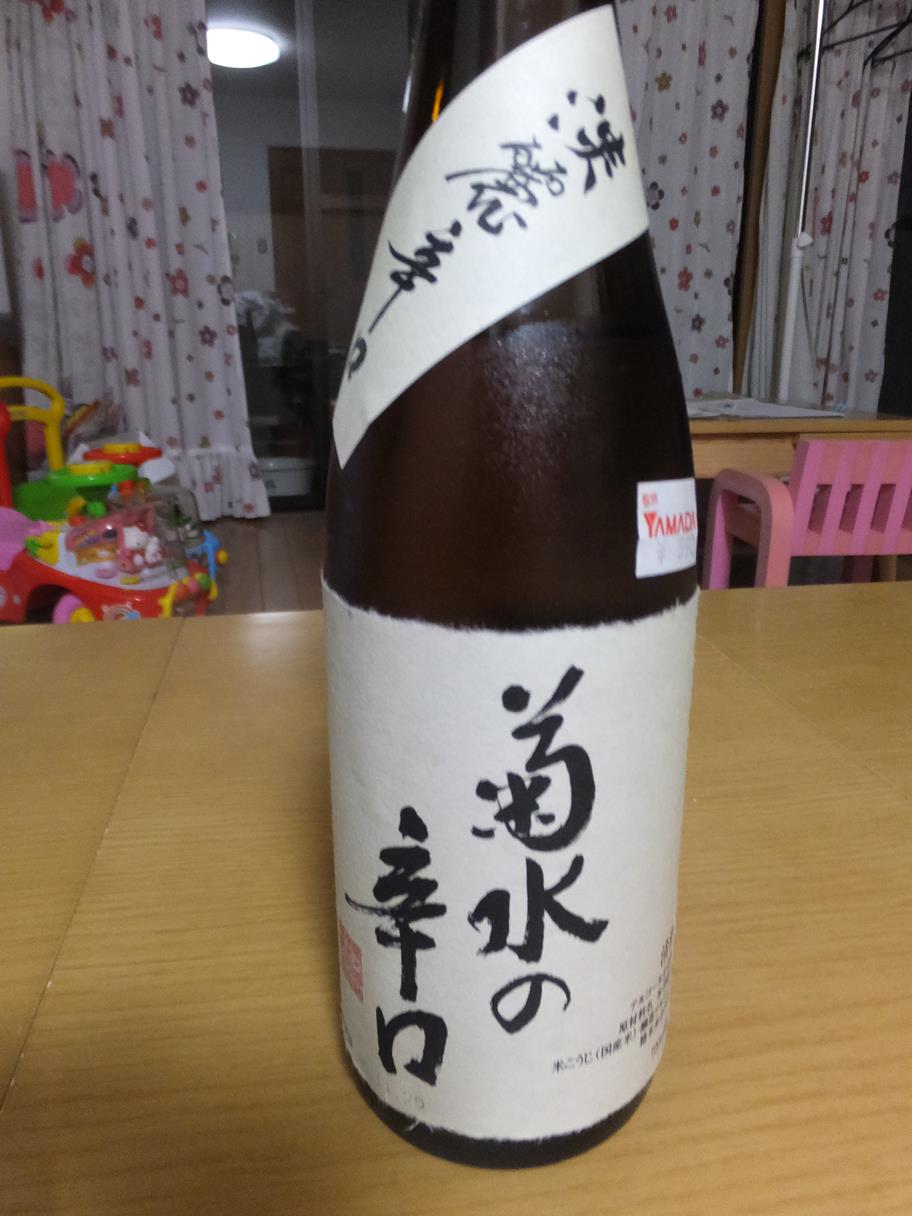 淡麗辛口
YAMADA
菊水の
辛口
米こうじ（国産米）